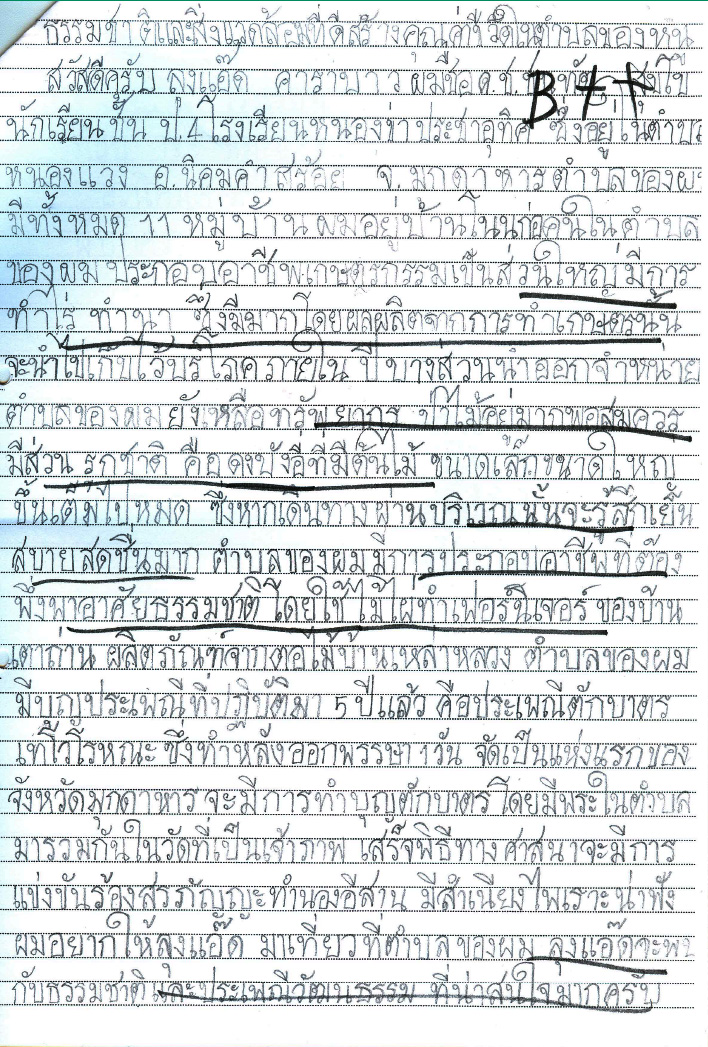 ธรรมชาติและสิ่งแวดล้อมที่ดีสร้างคุณค่าชีวิตในตำบลของหนู
สวัสดีครับ ลุงแอ๊ด คาราบาว ผมชื่อ ด.ช.
B++
นักเรียนชั้น ป.4 โรงเรียนหนองข่าประชาอุทิศ ซึ่งอยู่ในตำบล
หนองแวง อ.นิคมคำสร้อย จ.มุกดาหาร ตำบลของผม
มีทั้งหมด 11 หมู่บ้าน ผมอยู่บ้านโนนก่อ คนในตำบล
ของผม ประกอบอาชีพเกษตรกรรมเป็นส่วนใหญ่ มีการ
ทำไร่ ทำนา ซึ่งมีมากโดยผลผลิตจากการทำเกษตรนั้น
จะนำไปเก็บไว้บริโภคภายในปี บางส่วนนำออกจำหน่าย
ตำบลของผมยังเหลือทรัพยากร ป่าไม้อยู่มากพอสมควร
มีสวน รุกขชาติ คือดงบังอี่ที่มีต้นไม้ ขนาดเล็กขนาดใหญ่
ขึ้นเต็มไปหมด ซึ่งหากเดินทางผ่านบริเวณนั้นจะรู้สึกเย็น
สบายสดชื่นมาก ตำบลของผมมีการประกอบอาชีพที่ต้อง
พึ่งพาอาศัยธรรมชาติ โดยใช้ไม้ไผ่ทำเฟอร์นิเจอร์ ของบ้าน
เตาถ่าน ผลิตภัณฑ์จากตอไม้บ้านเหล่าหลวง ตำบลของผม
มีบุญประเพณีที่ปฏิบัติมา 5 ปีแล้ว คือประเพณีตักบาตร
เทโวโรหณะ ซึ่งทำหลังออกพรรษา 1 วัน จัดเป็นแห่งแรกของ
จังหวัดมุกดาหาร จะมีการทำบุญตักบาตรโดยมีพระในตำบล
มารวมกันในวัดที่เป็นเจ้าภาพ เสร็จพิธีทางศาสนาจะมีการ
แข่งขันร้องสรภัญญะทำนองอีสาน มีสำเนียงไพเราะน่าฟัง
ผมอยากให้ลุงแอ๊ด มาเที่ยวที่ตำบลของผม ลุงแอ๊ดจะพบ
กับธรรมชาติและประเพณีวัฒนธรรม ที่น่าสนใจมากครับ